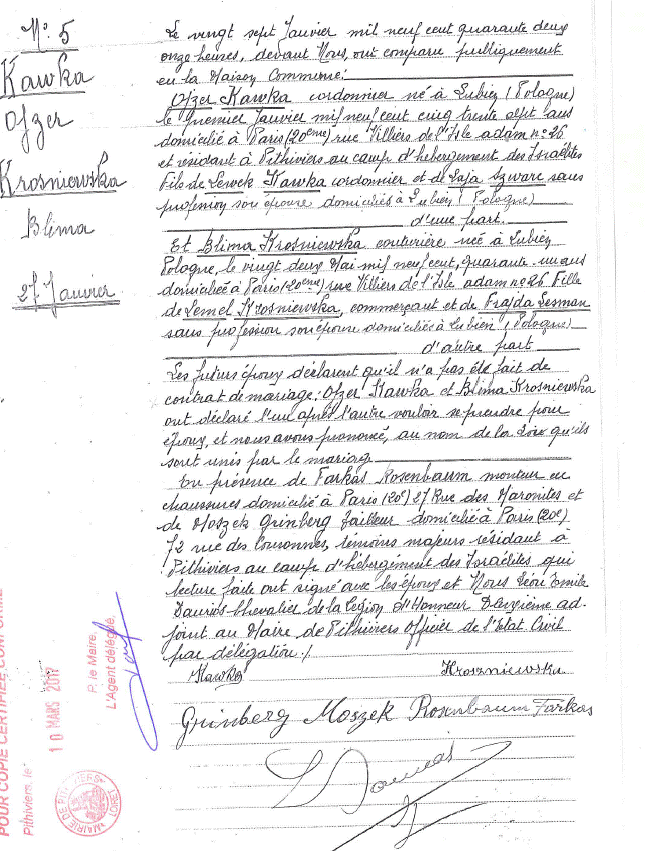 N° 5
Kawka
Ofzer
Krosniewska
Blima
27 Janvier
Le vingt sept Janvier mil neuf cent quarante deux
onze heures, devant Nous, ont comparu publiquement
en la Maison Commune:
Ofzer Kawka cordonnier né à Lubien (Pologne)
le premier Janvier mil neuf cent cinq trente sept ans
domicilié à Paris (20eme) rue Villiers de l'Isle adam n° 26
et résidant à Pithiviers au camp d'hébergement des Israélites
Fils de Lewek Kawka cordonnier et de Laja Szwarc sans
profession son épouse domiciliés à Lubien (Pologne)
d'une part.
Et Blima Krosniewska couturière née à Lubien
Pologne, le vingt deux Mai mil neuf cent, quarante un ans
domiciliée à Paris (20eme) rue Villiers de l'Isle adam n° 26 Fille
de Lemel Krosniewska, commerçant et de Frajda Lesman
sans profession son épouse domiciliés à Lubien (Pologne)
d'autre part
Les futurs époux déclarent qu'il n'a pas été fait de
contrat de mariage: Ofzer Kawka et Blima Krosniewska
ont déclaré l'un après l'autre vouloir se prendre pour
époux, et nous avons prononcé, au nom de la Loi qu'ils
sont unis par le mariag
En présence de Farkas Rosenbaum monteur en
chaussures domicilié à Paris (20e) 27 Rue des Maronites et
de Moszek Grinberg tailleur domicilié à Paris (20e)
72 rue des Couronnes, témoins majeurs résidant à
Pithiviers au camp d'hébergement des Israélites qui
lecture faite ont signé avec les époux et Nous Léon Emile
Daunois Chevalier de la Légion d'Honneur Deuxième ad-
joint au Maire de Pithiviers Officier de l'Etat Civil
par délégation /.
Kawka
Kroszniewska
Grinberg Moszek Rosenbaum Farkas
POUR COPIE CERTIFIEE CONFORME
Pithiviers, le
10 MARS 2017
P. le Maire,
L'Agent délégué,
MAIRIE DE PITHIVIERS
LOIRET